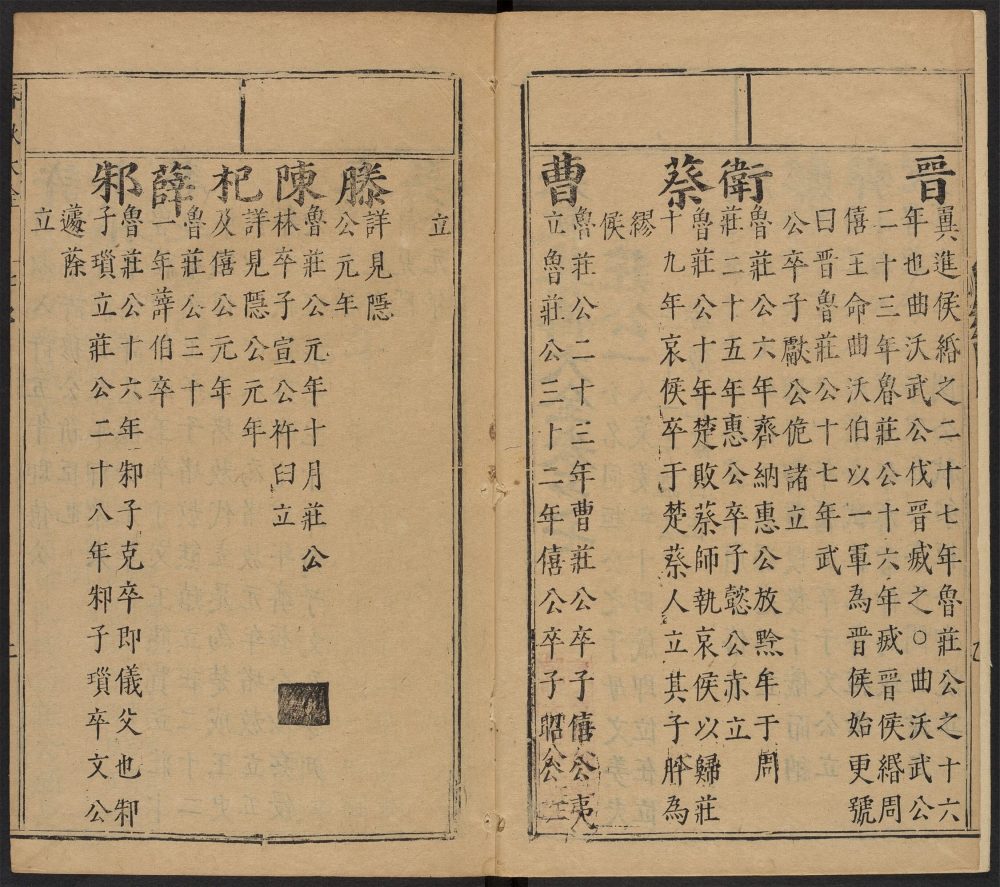 晉
翼進侯緡之二十七年魯莊公之十六
年也曲沃武公伐晉烕之○曲沃武公
二十三年魯莊公十六年烕晉侯緡周
僖王命曲沃伯以一軍為晉侯始更號
曰晉魯莊公十七年武
公卒子獻公佹諸立
衛
魯莊公六年齊納惠公放黔牟于周
莊二十五年惠公卒子懿公赤立
蔡
魯莊公十年楚敗蔡師執哀侯以歸莊
十九年哀侯卒于楚蔡人立其子肸為
繆
侯
曹
魯莊公二十三年曹莊公卒子僖公夷
立魯莊公三十二年僖公卒子昭公
立
滕
詳見隱
公元年
陳
魯莊公元年十月莊公
林卒子宣公杵臼立
杞
詳見隱公元年
及僖公元年
薛
魯莊公三十
一年薛伯卒
邾
魯莊公十六年邾子克卒即儀父也邾
子瑣立莊公二十八年邾子瑣卒文公
蘧蒢
立
春秋大全